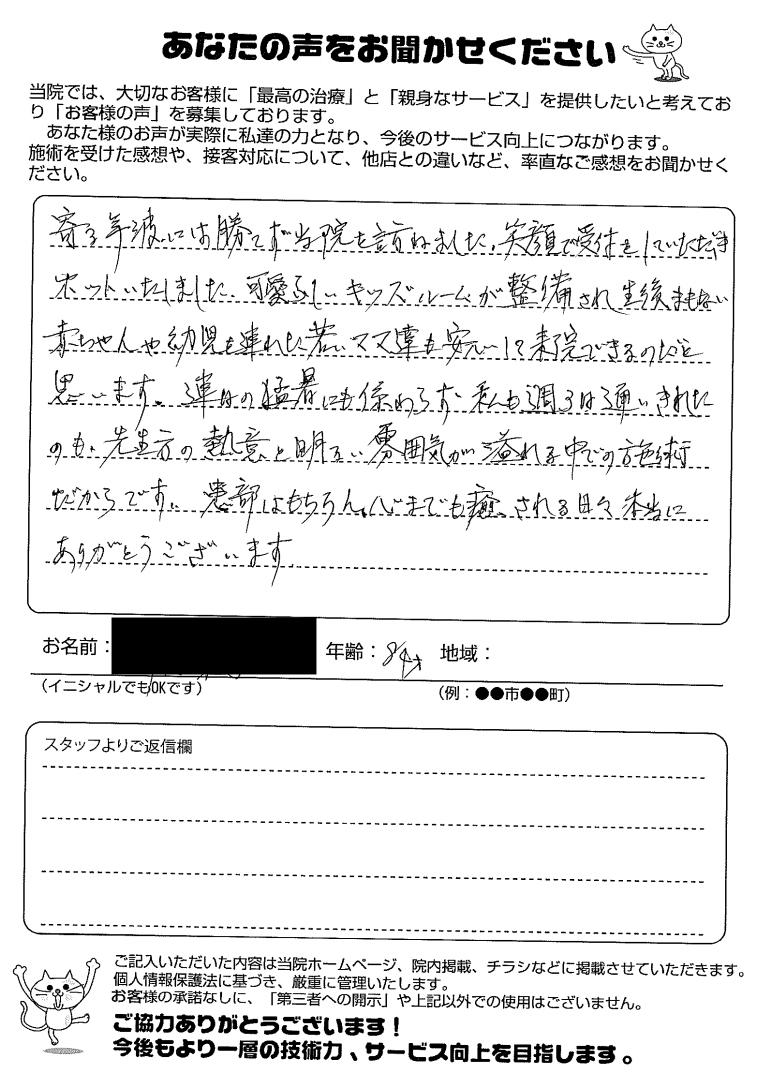 あなたの声をお聞かせください
当院では、大切なお客様に「最高の治療」と「親身なサービス」を提供したいと考えてお
り「お客様の声」を募集しております。
あなた様のお声が実際に私達の力となり、今後のサービス向上につながります。
施術を受けた感想や、接客対応について、他店との違いなど、率直なご感想をお聞かせく
ださい。
寄る年波には勝てず当院を訪ねました。笑顔で受付をしていただき
ホットいたしました。可愛らしいキッズルームが整備され生後まもない
赤ちゃんや幼児を連れた若いママ達も安心して来院できるのだと
思います。連日の猛暑にも係わらず私も週3日通いきれた
のも、先生方の熱意と明るい雰囲気が溢れる中での施術
だからです。患部はもちろん。心までも癒される日々本当に
ありがとうございます。
お名前： 年齢：84才 地域：
（イニシャルでもOKです） （例：●●市●●町）
スタッフよりご返信欄
ご記入いただいた内容は当院ホームページ、院内掲載、チラシなどに掲載させていただきます。
個人情報保護法に基づき、厳重に管理いたします。
お客様の承諾なしに、「第三者への開示」や上記以外での使用はございません。
ご協力ありがとうございます！
今後もより一層の技術力、サービス向上を目指します。